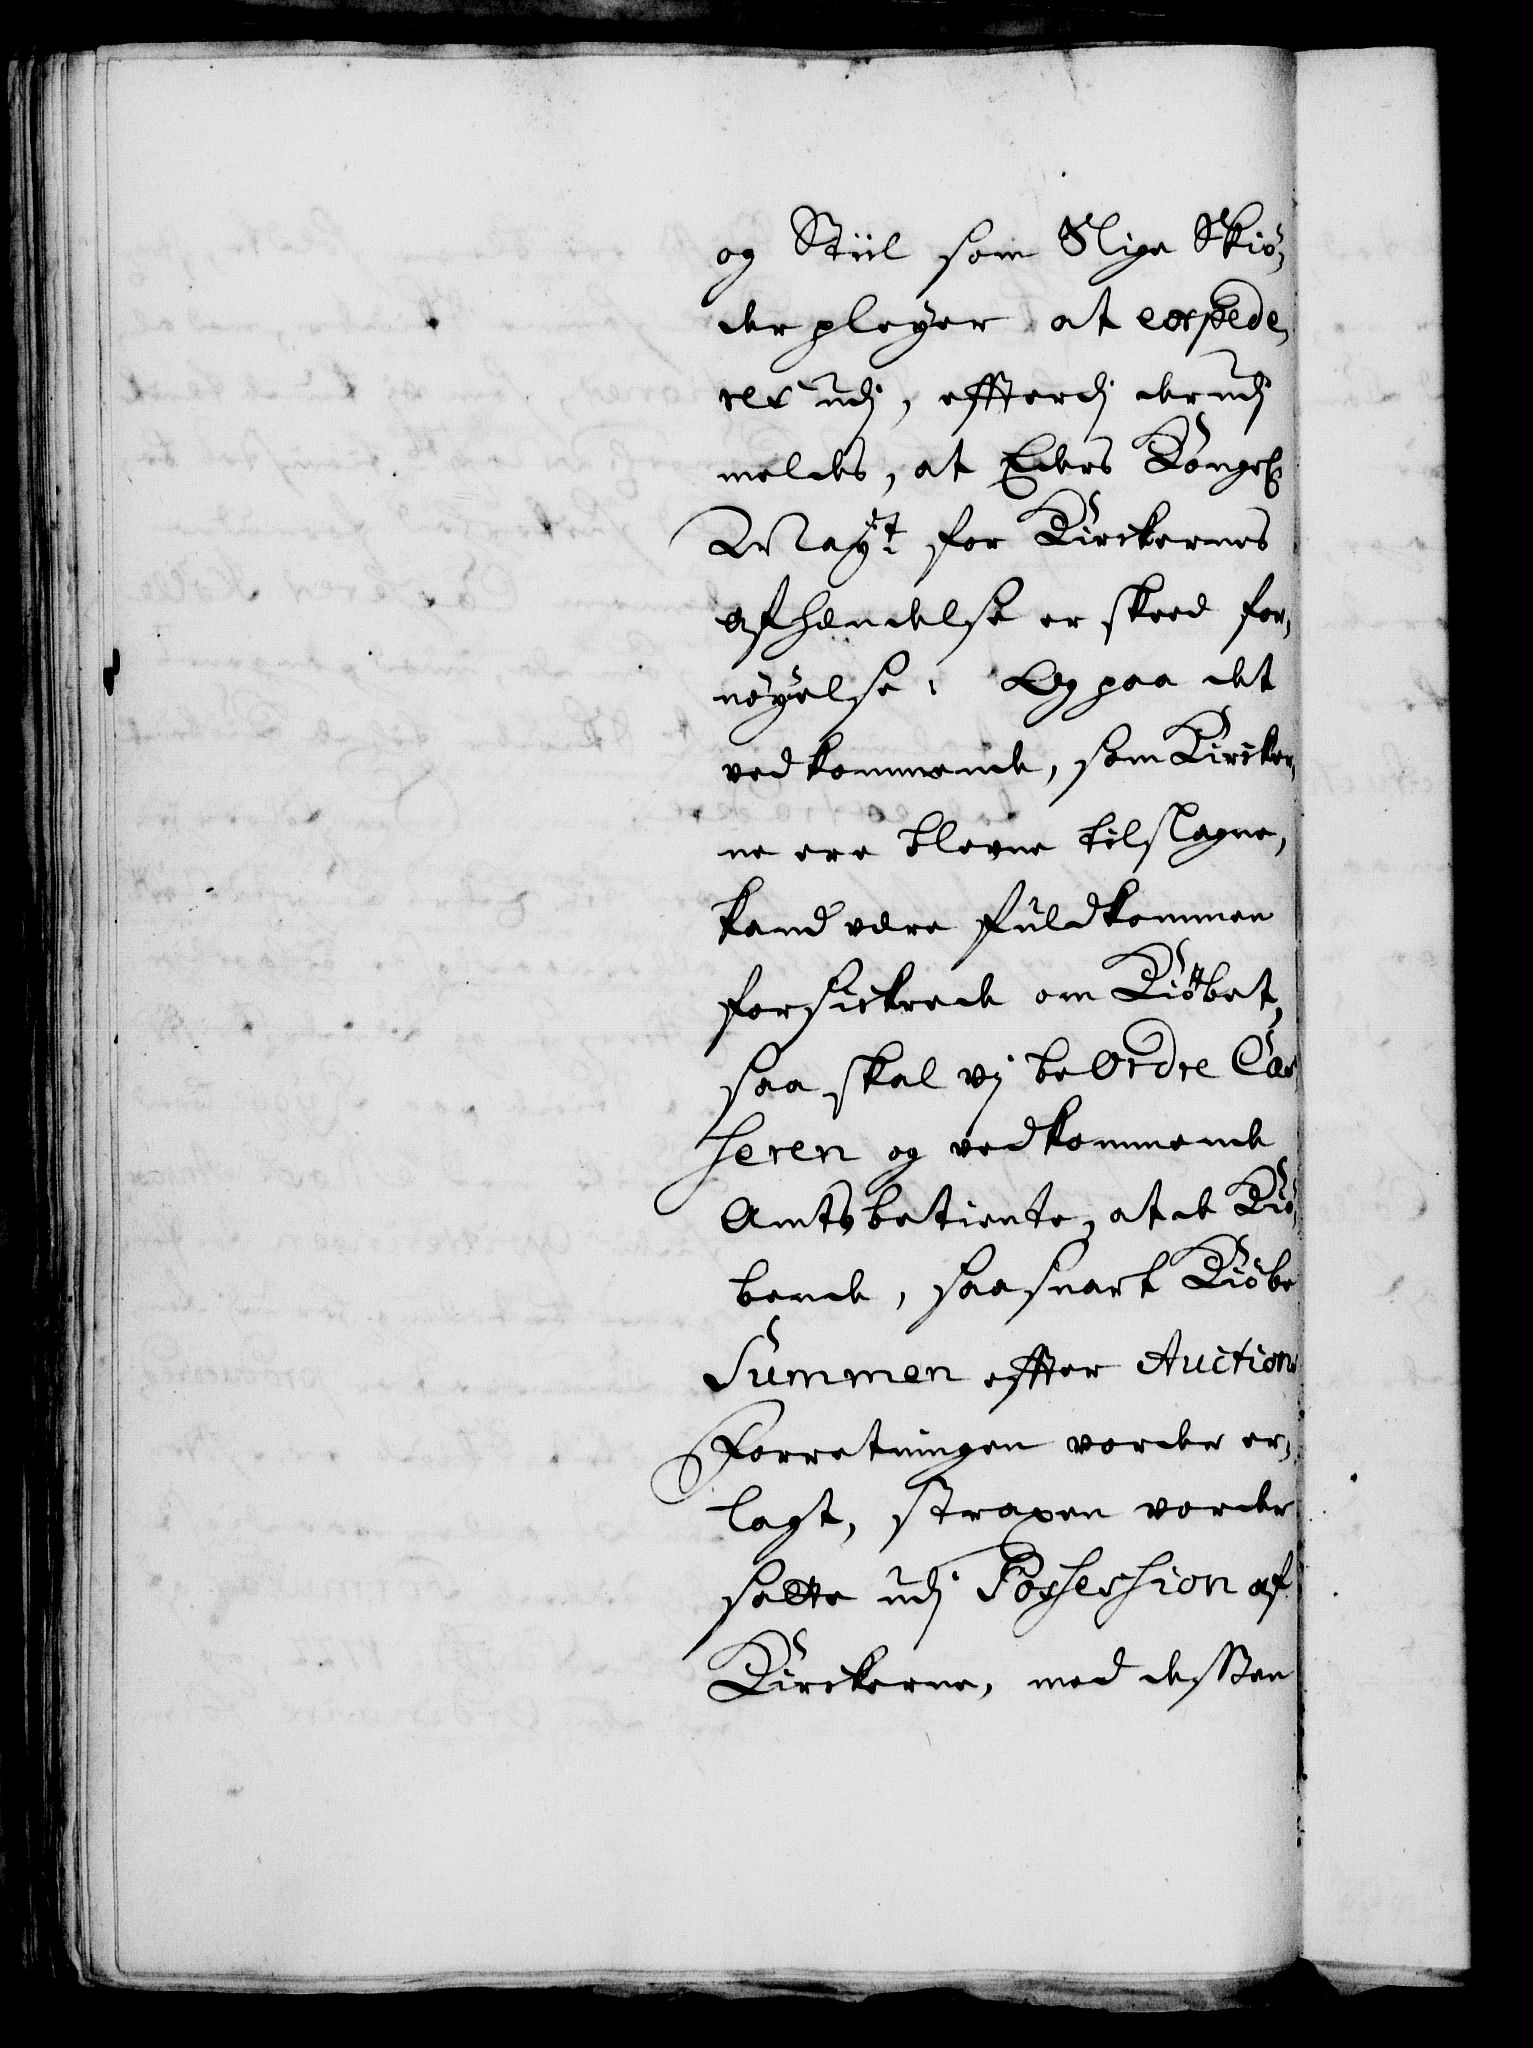 og Stiil som Slige Skiö-
der pleyer at expede-
res udj, effterdj derudj
meldes, at Eders Kongel:
Mayt: for Kirckernes
afhændelse er skeed for-
nöyelse: Og paa det
vedkommende, som Kircker-
ne ere blevne tilslagne,
kand være fuldkommen
forsickrede om Kiöbet,
saa skal vj beordre Cas
seren og vedkommende
Amtsbetiente, at de Kiö-
bende, saasnart Kiöbe
Summen effter Auctions
Forretningen vorder er-
lagt, straxen vorder
satte udj Possession af
Kirckerne, med dessen